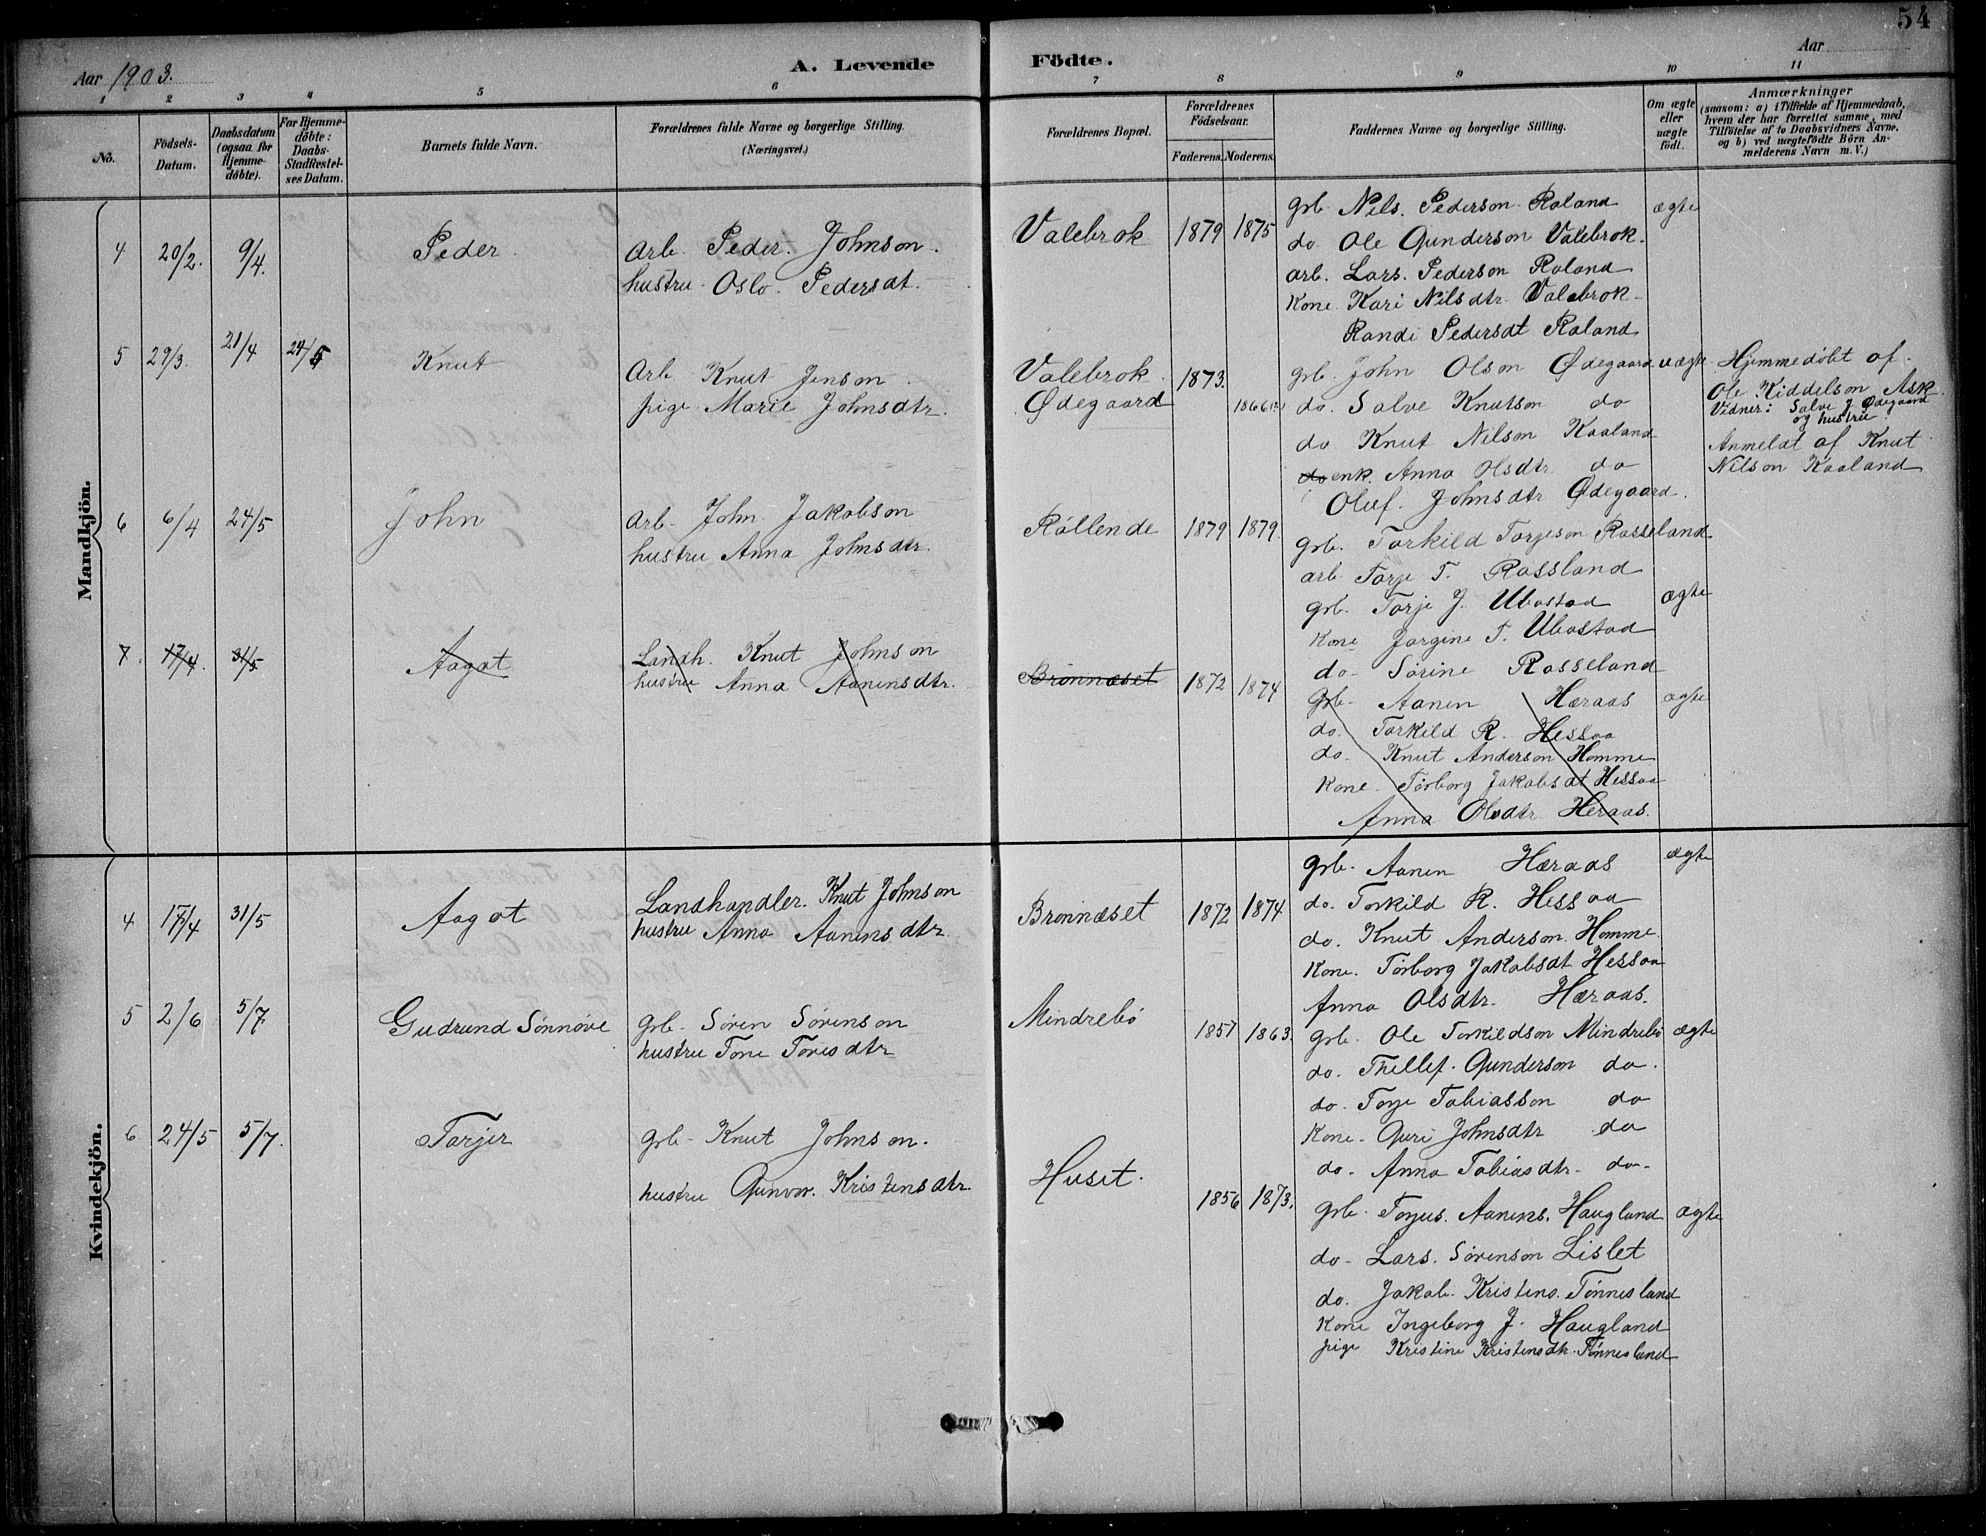 54
Aar 1903.
A. Levende Födte.
Aar
1 2 3 4 5 6 7 8 9 10 11
No.
Födsels-Datum.
Daabsdatum (ogsaa for Hjemme-döbte).
For Hjemme-döbte: Daabs-Stadfæstel-ses Datum.
Barnets fulde Navn.
Forældrenes fulde Navne og borgerlige Stilling.
(Næringsvei.)
Forældrenes Bopæl.
Forældrenes Födselsaar.
Faderens. Moderens.
Faddernes Navne og borgerlige Stilling.
Om ægte eller uægte födt.
Anmærkninger
(saasom: a) i Tilfælde af Hjemmedaab,
hvem der har forrettet samme, med
Tilföielse af to Daabsvidners Navne.
og b) ved uægtefödte Börn An-
melderens Navn m. V.)
Mandkjön.
4 20/2. 9/4. Peder.
Arb. Peder. Johnson.
hustru. Oslo. Pedersdt.
Valebrok 1879 1875
grb. Nils. Pederson. Roland ægte
do. Ole Gunderson Valebrok.
arb. Lars. Pederson Roland
Kone Kari Nilsdtr Valebrok
Randi Pedersdt Roland
5 29/3. 21/4 24/5 Knut
Arb Knut Jenson.
pige. Marie Johnsdtr.
Valebrok 1873.
Ødegaard 1866
grb. John Olson Ødegaard uægte
do. Salve Knutson do
do Knut Nilson Kaaland
do enk. Anna Olsdtr do
Oluf. Johnsdtr Ødegaard.
Hjemmedøbt af
Ole Kiddelson Ask.
Vidner: Salve J Ødegaard
og hustru.
Anmeldt af Knut
Nilson Kaaland
6 6/4 24/5 John
Arb. John Jakobson
hustru Anna Johnsdtr.
Røllende 1879 1879.
grb. Torkild Torjeson Rosseland
arb Torje T. Rossland
grb. Torje J. Ubostad ægte
Kone Jorgine T. Ubostad
do. Sørine Rosseland
7. 17/4. 31/5 Aagot
Landh. Knut Johnson
hustru Anna Aanensdtr.
Brønnæset 1872 1874
grb. Aanen Hæraas ægte
do. Torkild R. Hessaa
do. Knut Anderson Homme
Kone. Torborg Jakobsdt Hessaa
Anna Olsdtr Heraas.
Kvindekjön.
4 17/4 31/5 Aagot
Landhandler. Knut Johnson
hustru Anna Aanensdtr.
Brønnæset 1872 1874
grb. Aanen Hæraas ægte
do. Torkild R. Hessaa
do. Knut Anderson Homme.
Kone. Torborg Jakobsdt Hessaa
Anna Olsdtr. Hæraas.
5 2/6 5/7. Gudrund Sønnøve
grb. Søren Sørenson
hustru Tone Toresdtr
Mindrebø 1857 1863.
grb. Ole Torkildson Mindrebø ægte
do. Thellef. Gunderson do.
do. Torje Tobiasson do
Kone. Guri Johnsdtr do
do. Anna Tobiasdtr. do.
6 24/5 5/7. Torjer
grb. Knut Johnson.
hustru Gunvor. Kristensdtr.
Huset. 1856 1873.
grb. Torjus. Aanens. Haugland ægte
do. Lars. Sørenson Lislet
do. Jakob. Kristens. Tønnesland
Kone Ingeborg J. Haugland
pige Kristine Kristensdtr. Tønnesland